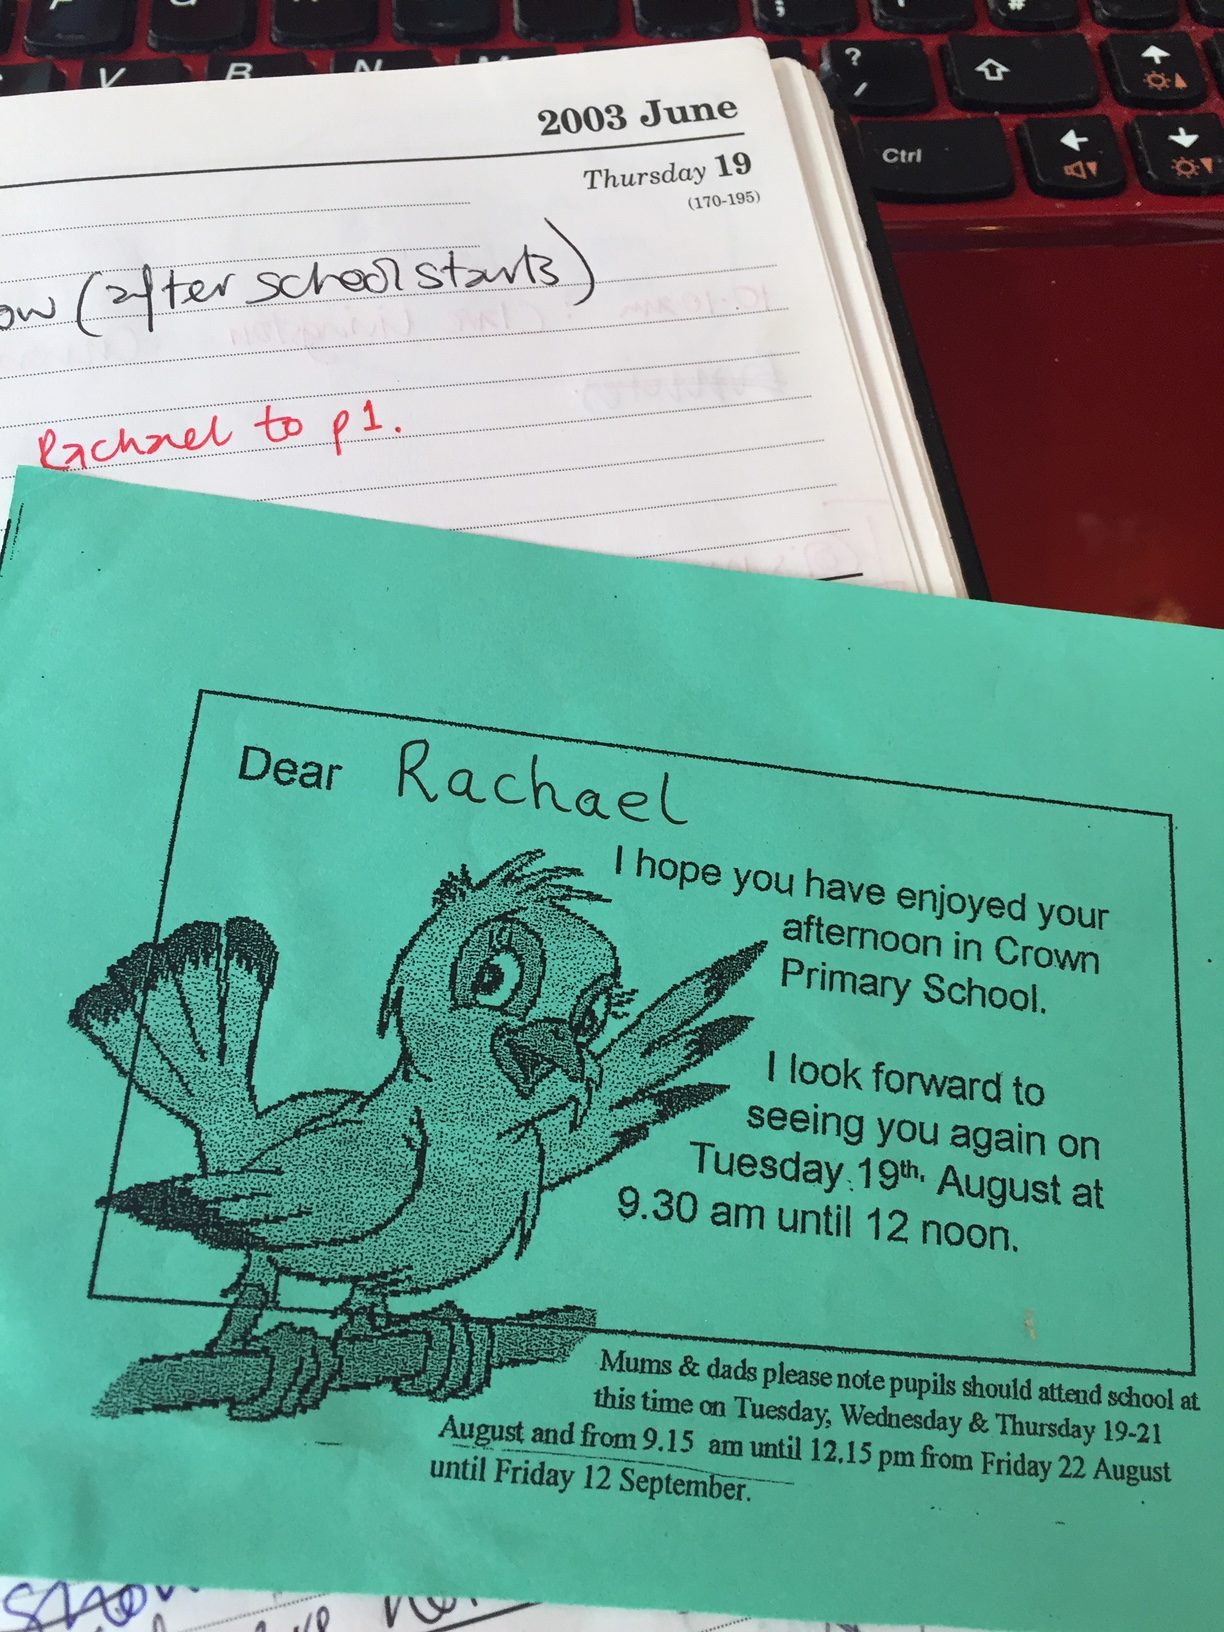 V B N M
?
/
Ctrl
2003 June
Thursday 19
(170-195)
(after school starts)
Rachael to p1.
Dear Rachael
I hope you have enjoyed your
afternoon in Crown
Primary School.
I look forward to
seeing you again on
Tuesday 19th. August at
9.30 am until 12 noon.
Mums & dads please note pupils should attend school at
this time on Tuesday, Wednesday & Thursday 19-21
August and from 9.15 am until 12.15 pm from Friday 22 August
until Friday 12 September.